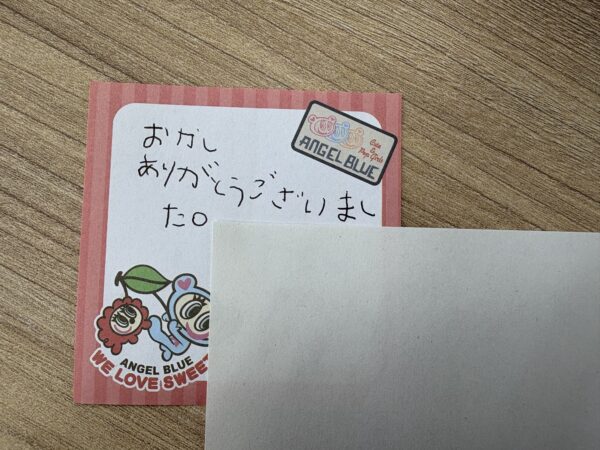 おかし
ありがとうございまし
た。
Cute
&
Pop Girls
ANGEL BLUE
ANGEL BLUE
WE LOVE SWEET